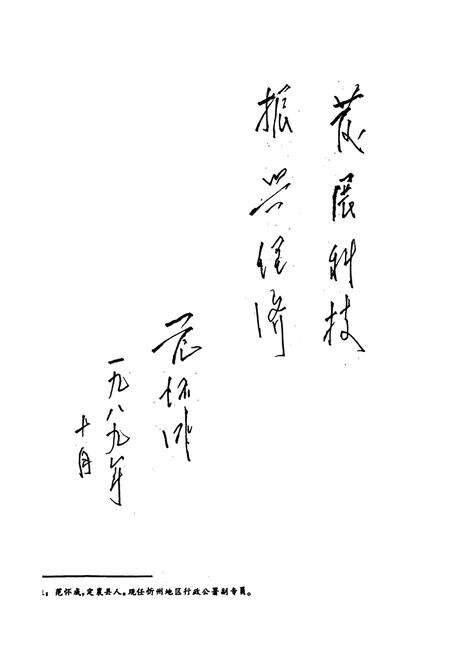 发展科技
振兴经济
范怀成
一九八九年
十月
注：范怀成，定襄县人。现任忻州地区行政公署副专员。